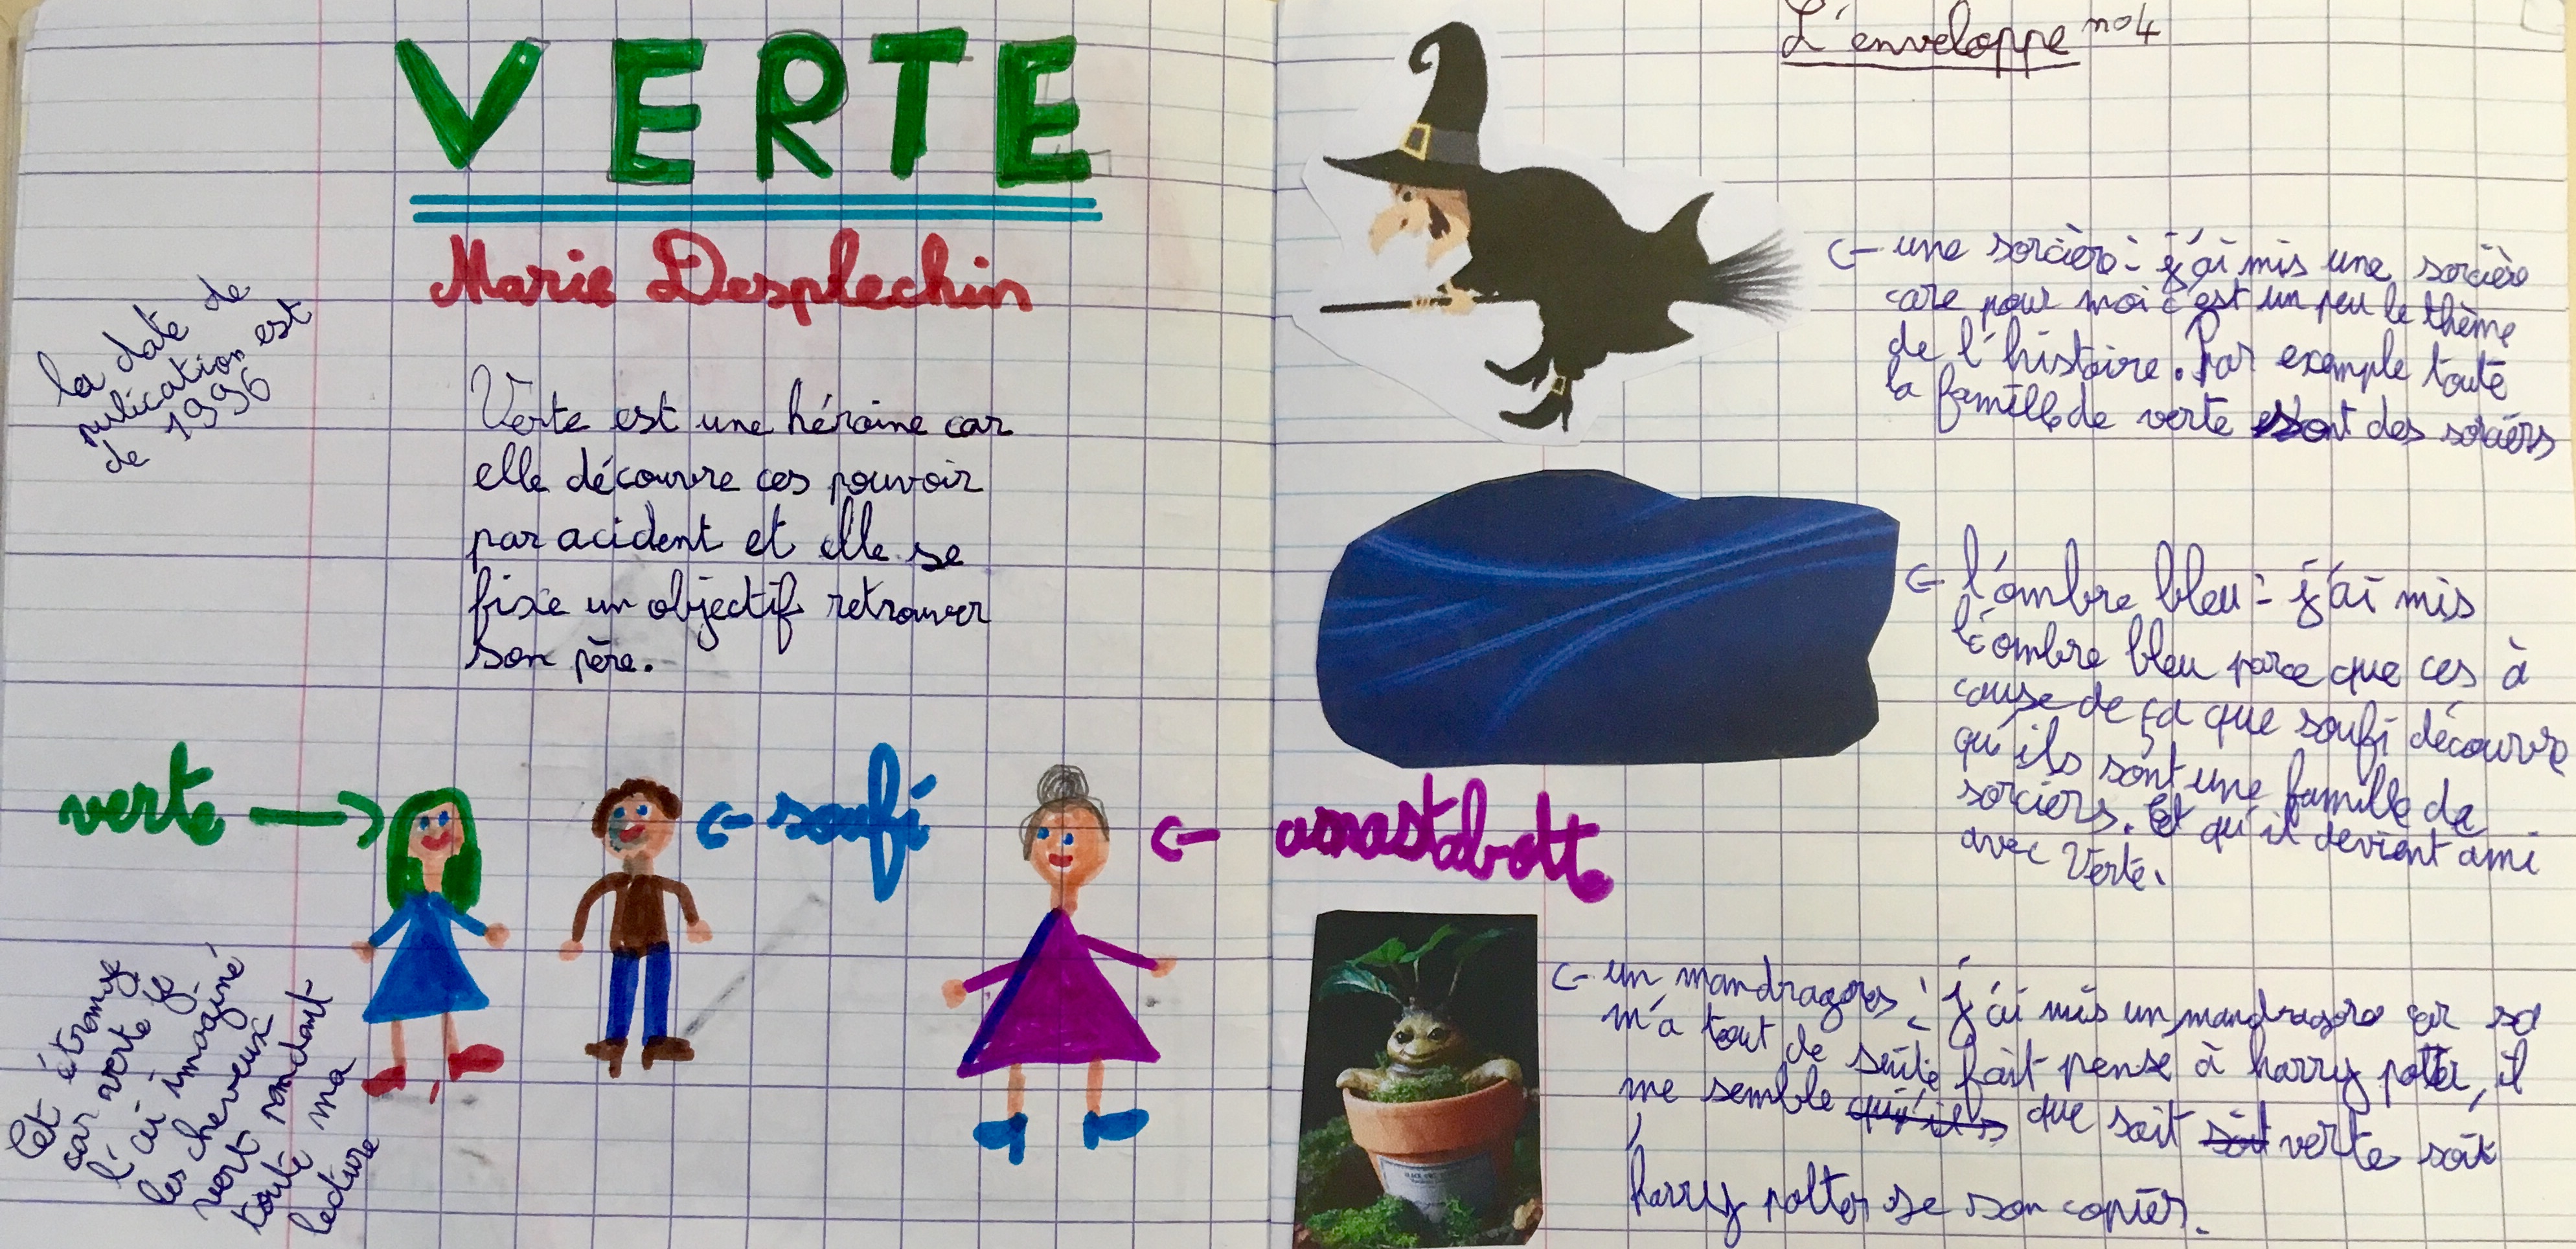 VERTE
Marie Desplechin
la date de
publication est
de 1996
Verte est une héroine car
elle découvre ces pouvoir
par acident et elle se
fixe un objectif retrouver
son père.
verte
soufi
anastabotte
Cet étrange
car verte je
l'ai imaginé
les cheveux
vert pendant
toute ma
lecture
L'enveloppe n°4
une sorcière : j'ai mis une sorcière
care pour moi c'est un peu le thème
de l'histoire. Par exemple toute
la famille de verte sont des sorciers
l'ombre bleu : j'ai mis
l'ombre bleu parce que ces à
cause de ça que soufi découvre
qu'ils sont une famille de
sorciers. Et qu'il devient ami
avec Verte.
un mandragores : j'ai mis un mandragore car sa
m'a tout de suite fait pensé à harry potter, il
me semble que soit verte soit
harry potter se son copiés.